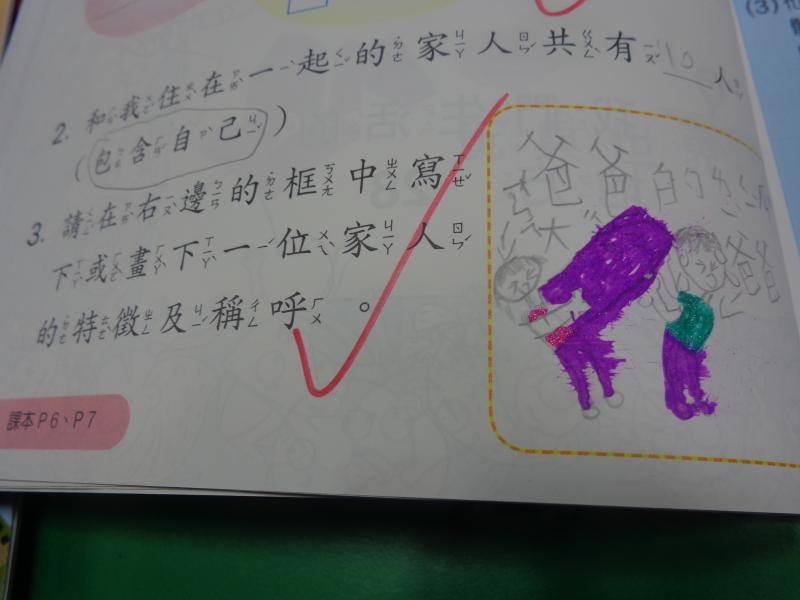 2. 和我住在一起的家人共有10人
(包含自己)
3. 請在右邊的框中寫
下或畫下一位家人
的特徵及稱呼。
課本P6、P7
爸爸的
大
爸爸
(3)